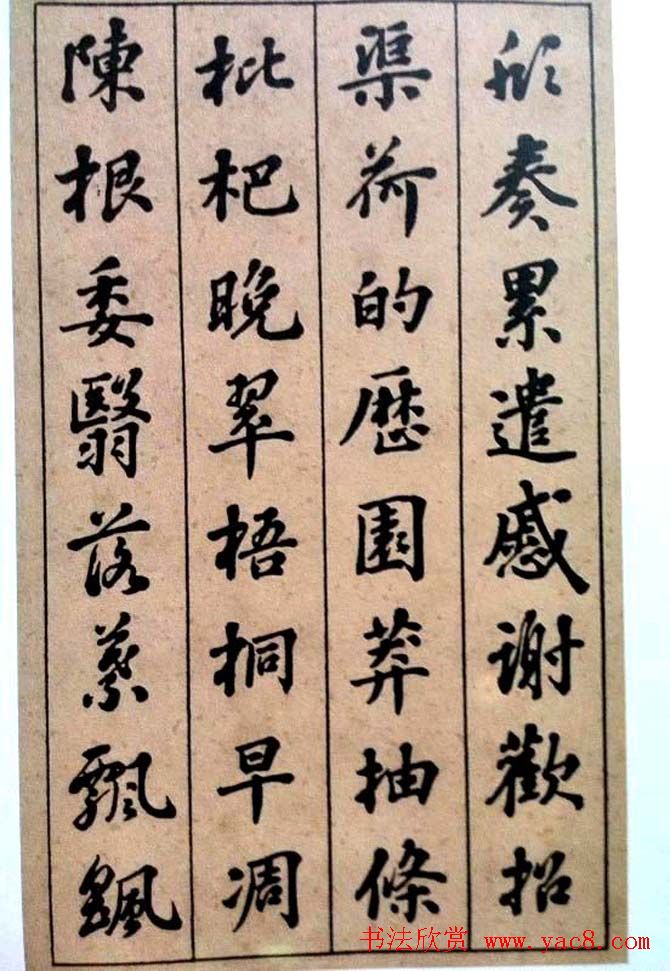 欣奏累遣慼謝歡招
渠荷的歷園莽抽條
枇杷晚翠梧桐早凋
陳根委翳落葉飄颻
书法欣赏 www.yac8.com